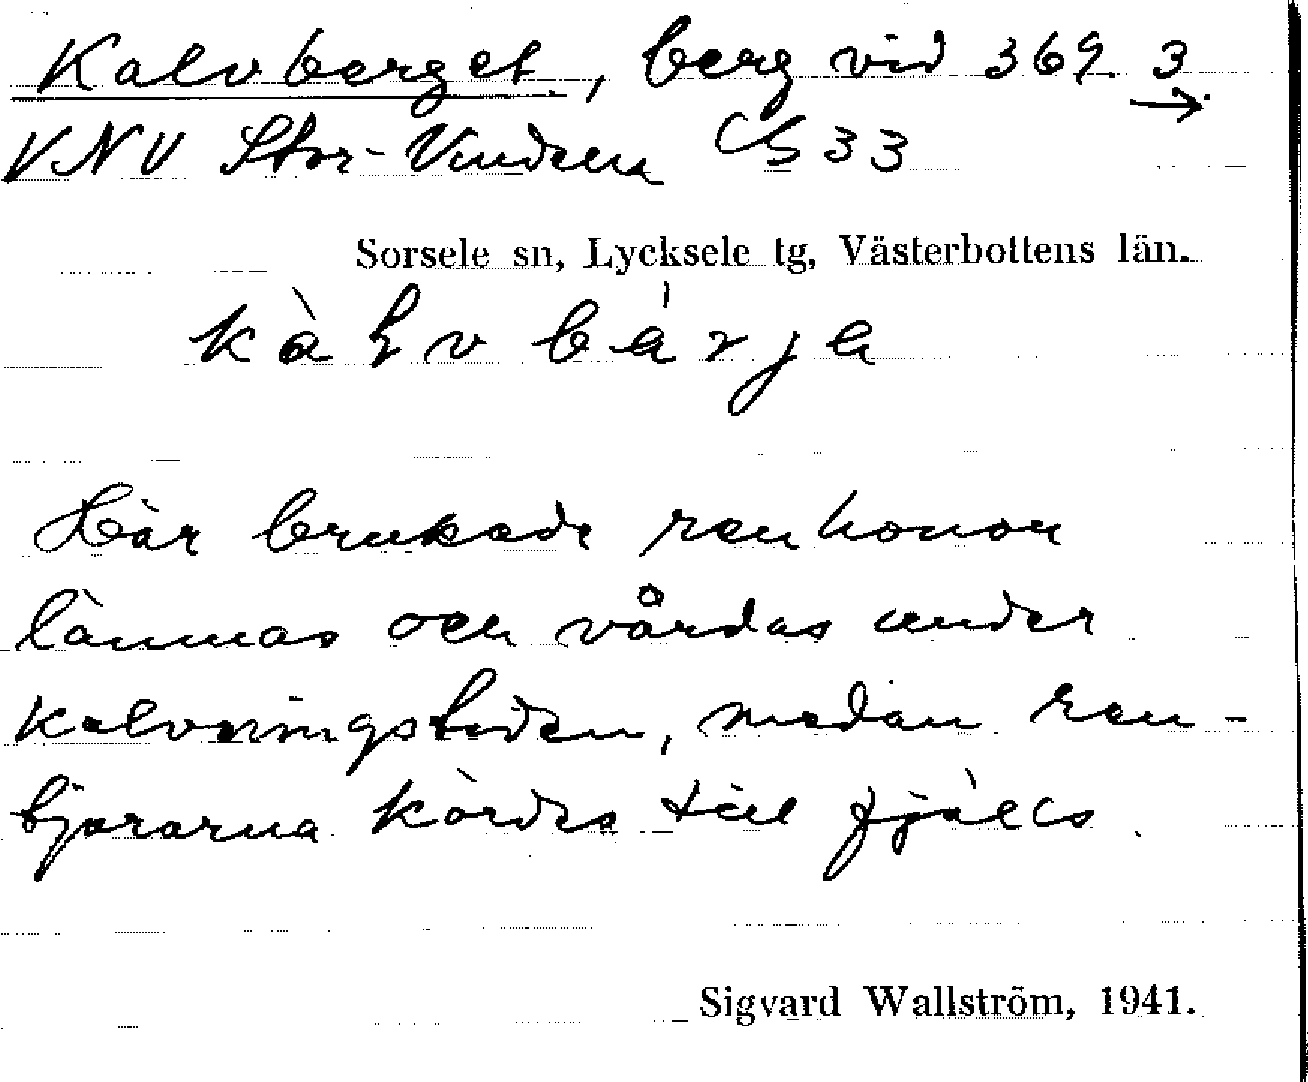 Kalvberget, berg vid 369. 3
VNV Stor-Vindeln Cb 33
Sorsele sn, Lycksele tg, Västerbottens län.
Här brukade renhonor
lämnas och vårdas under
kalvningstiden, medan ren-
tjurarna kördes till fjälls.
Sigvard Wallström, 1941.